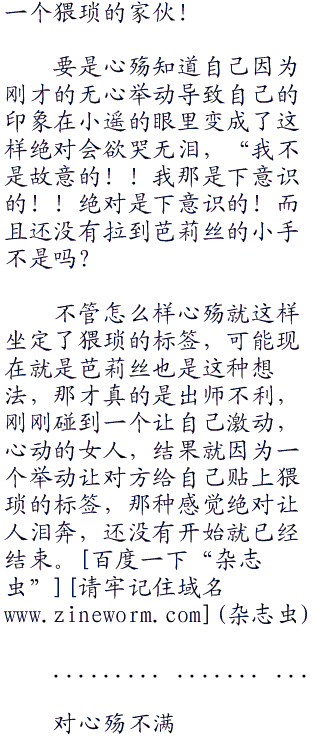 一个猥琐的家伙！
要是心殇知道自己因为
刚才的无心举动导致自己的
印象在小遥的眼里变成了这
样绝对会欲哭无泪，“我不
是故意的！！我那是下意识
的！！绝对是下意识的！而
且还没有拉到芭莉丝的小手
不是吗？
不管怎么样心殇就这样
坐定了猥琐的标签，可能现
在就是芭莉丝也是这种想
法，那才真的是出师不利，
刚刚碰到一个让自己激动，
心动的女人，结果就因为一
个举动让对方给自己贴上猥
琐的标签，那种感觉绝对让
人泪奔，还没有开始就已经
结束。[百度一下“杂志
虫”][请牢记住域名
www.zineworm.com](杂志虫)
......... ....... ...
对心殇不满